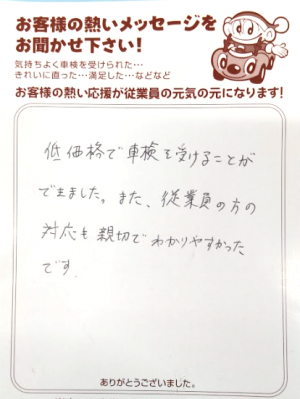 お客様の熱いメッセージを
お聞かせ下さい!
気持ちよく車検を受けられた…
きれいに直った…満足した…などなど
お客様の熱い応援が従業員の元気の元になります!
低価格で車検を受けることが
できました。また、従業員の方の
対応も親切でわかりやすかった
です.
ありがとうございました。